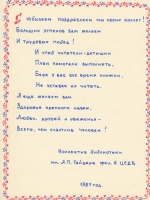 С юбилеем поздравляем мы своих коллег!
Больших успехов вам желаем
И трудовых побед!
И чтоб читатели-детишки
План помогали выполнять,
Беря у вас все время книжки,
Не уставая их читать.
И еще желаем вам
Здоровья крепкого навек,
Любви, друзей и уважения -
Всего, чем счастлив человек!
Коллектив библиотеки
им. А.П. Гайдара фил. 6 ЦСДБ
1987 год